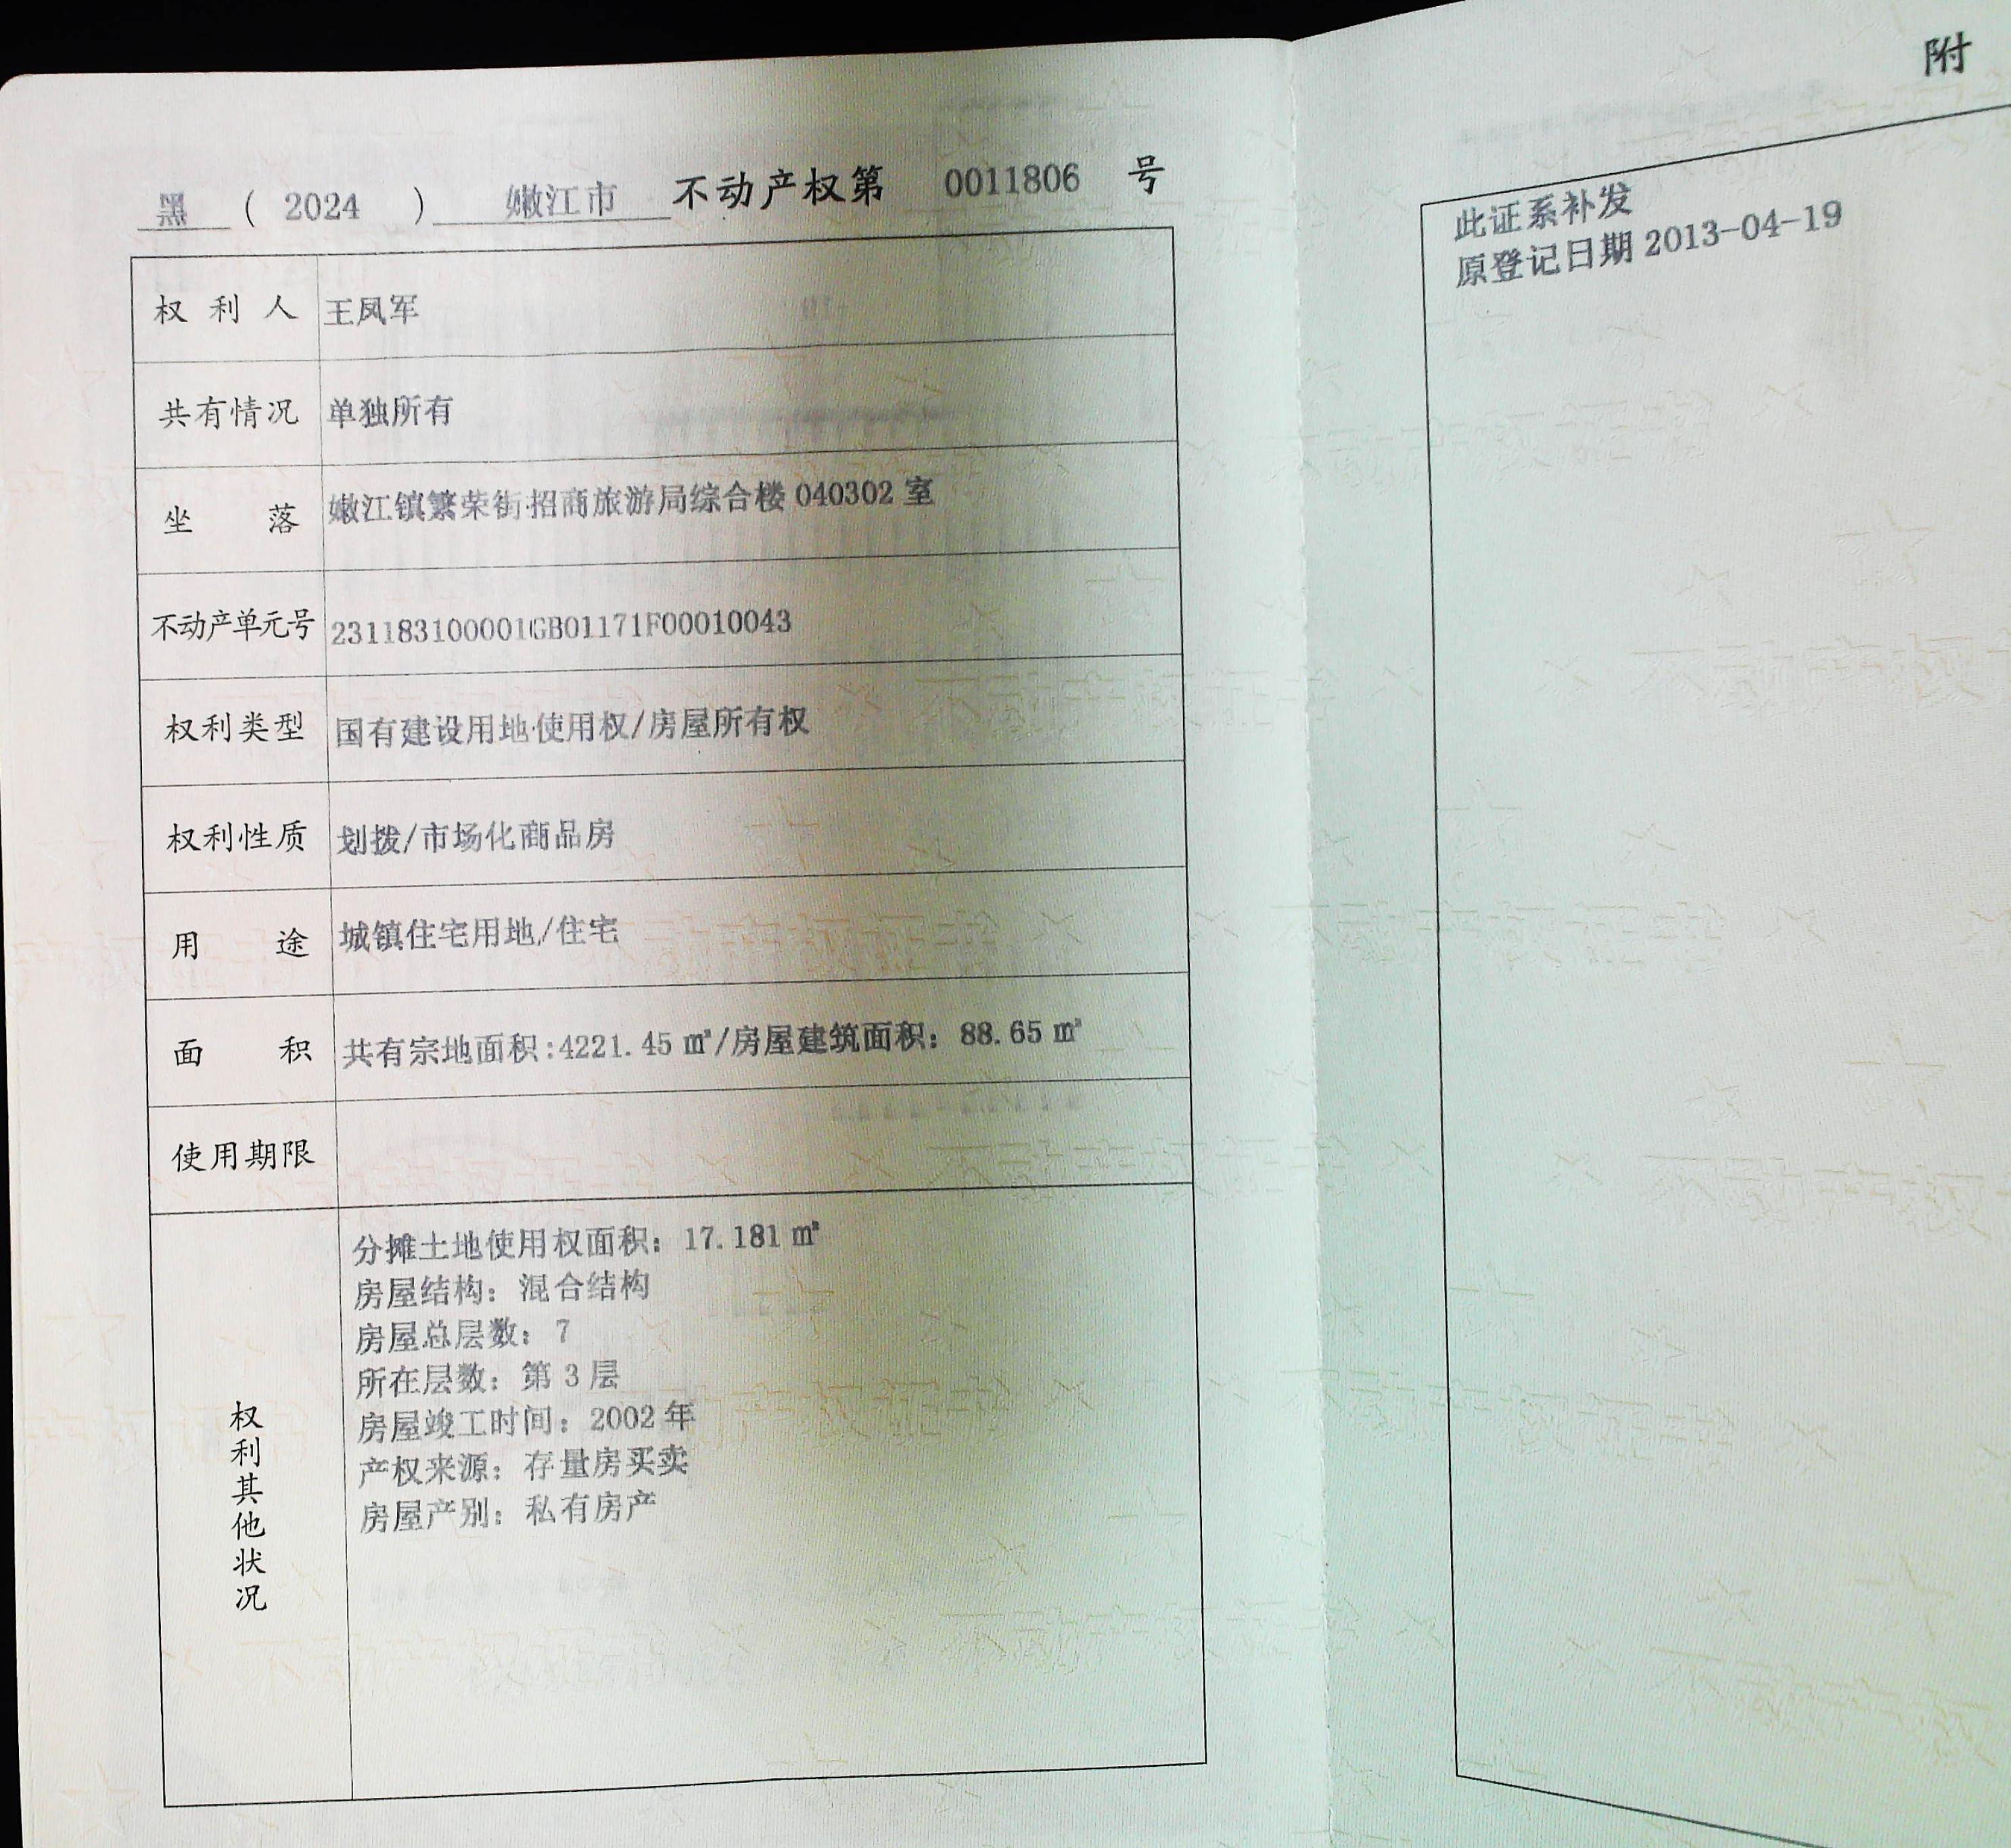 黑 ( 2024 ) 嫩江市 不动产权第 0011806 号
权利人 王凤军
共有情况 单独所有
坐落 嫩江镇繁荣街招商旅游局综合楼 040302 室
不动产单元号 231183100001GB01171F00010043
权利类型 国有建设用地使用权/房屋所有权
权利性质 划拨/市场化商品房
用途 城镇住宅用地/住宅
面积 共有宗地面积:4221.45 ㎡/房屋建筑面积：88.65 ㎡
使用期限
权利其他状况
分摊土地使用权面积：17.181 ㎡
房屋结构：混合结构
房屋总层数：7
所在层数：第 3 层
房屋竣工时间：2002 年
产权来源：存量房买卖
房屋产别：私有房产
附
此证系补发
原登记日期 2013-04-19